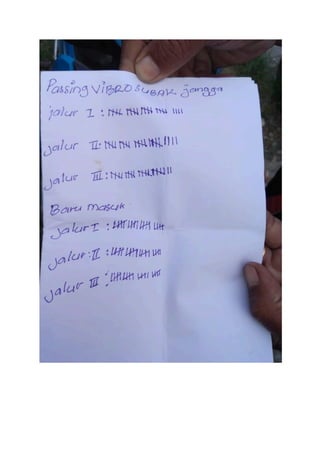 Passing VIBRO SUBAK jangga
jalur I :
jalur II :
jalur III :
Baru masuk
jalur I :
jalur : II :
jalur III :